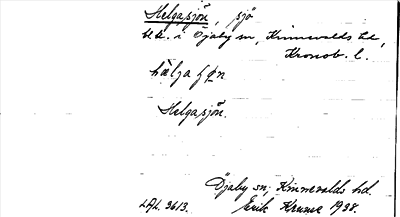 Helgasjön, sjö
i Öjaby sn, Kinnevalds hd,
Kronob. l.
hälja
Helgasjön.
Öjaby sn, Kinnevalds hd.
LAL. 3613. Erik Kruuse 1938.